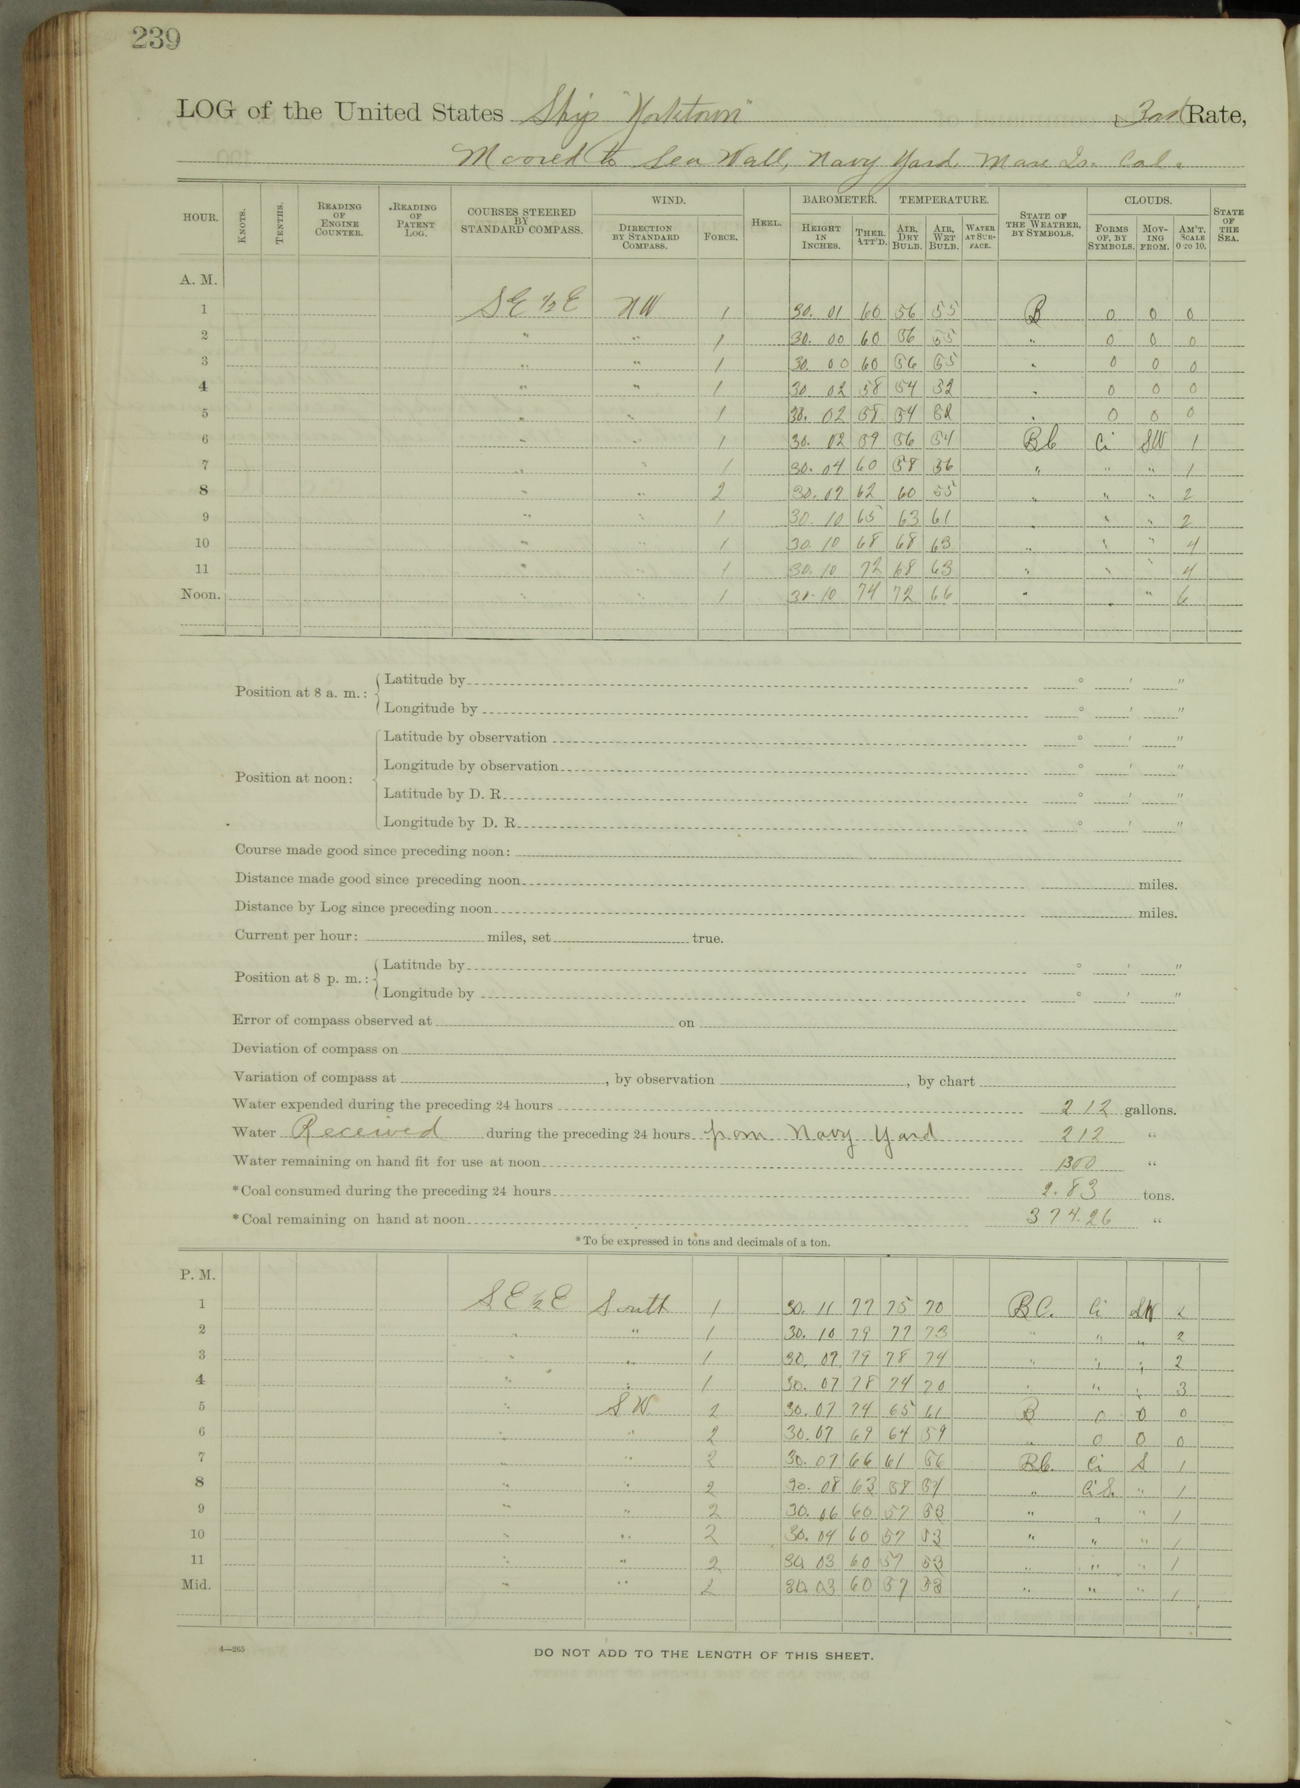 239
LOG of the United States Ship "Yorktown" 3rd Rate,
Moored to Sea Wall, Navy Yard, Mare Is. Cal.
HOUR. KNOTS. TENTHS. READING OF ENGINE COUNTER. READING OF PATENT LOG. COURSES STEERED BY STANDARD COMPASS. WIND. DIRECTION BY STANDARD COMPASS. FORCE. HEEL. BAROMETER. HEIGHT IN INCHES. THER. ATT'D. TEMPERATURE. AIR, DRY BULB. AIR, WET BULB. WATER AT SURFACE. STATE OF THE WEATHER, BY SYMBOLS. CLOUDS. FORMS OF, BY SYMBOLS. MOVING FROM. AM'T. SCALE 0 TO 10. STATE OF THE SEA.
A. M.
1 SE ½ E NW 1 30. 01 60 56 55 B 0 0 0
2 " " 1 30. 00 60 56 55 " 0 0 0
3 " " 1 30. 00 60 56 55 " 0 0 0
4 " " 1 30 02 58 54 52 " 0 0 0
5 " " 1 30. 02 58 54 52 " 0 0 0
6 " " 1 30. 02 59 56 54 Bc Ci SW 1
7 " " 1 30. 04 60 58 56 " " " 1
8 " " 2 30. 07 62 60 55 " " " 2
9 " " 1 30. 10 65 63 61 " " " 2
10 " " 1 30. 10 68 68 63 " " " 4
11 " " 1 30. 10 72 68 63 " " " 4
Noon. " " 1 30. 10 74 72 66 " " " 6
Position at 8 a. m.: Latitude by ° ' "
Longitude by ° ' "
Position at noon: Latitude by observation ° ' "
Longitude by observation ° ' "
Latitude by D. R. ° ' "
Longitude by D. R. ° ' "
Course made good since preceding noon:
Distance made good since preceding noon miles.
Distance by Log since preceding noon miles.
Current per hour: miles, set true.
Position at 8 p. m.: Latitude by ° ' "
Longitude by ° ' "
Error of compass observed at on
Deviation of compass on
Variation of compass at , by observation , by chart
Water expended during the preceding 24 hours 212 gallons.
Water Received during the preceding 24 hours from Navy Yard 212 "
Water remaining on hand fit for use at noon 1300 "
*Coal consumed during the preceding 24 hours 2.83 tons.
*Coal remaining on hand at noon 374.26 "
*To be expressed in tons and decimals of a ton.
P. M.
1 SE ½ E South 1 30. 11 77 75 70 BC. Ci SW 2
2 " " 1 30. 10 79 77 73 " " " 2
3 " " 1 30. 07 79 78 74 " " " 2
4 " " 1 30. 07 78 74 70 " " " 3
5 " SW 2 30. 07 74 65 61 B 0 0 0
6 " " 2 30. 07 69 64 59 " 0 0 0
7 " " 2 30. 07 66 61 56 Bc. Ci S 1
8 " " 2 30. 08 63 58 54 " Ci S. " 1
9 " " 2 30. 06 60 57 53 " " " 1
10 " " 2 30. 04 60 57 53 " " " 1
11 " " 2 30. 03 60 57 53 " " " 1
Mid. " " 2 30. 03 60 57 53 " " " 1
4—265
DO NOT ADD TO THE LENGTH OF THIS SHEET.